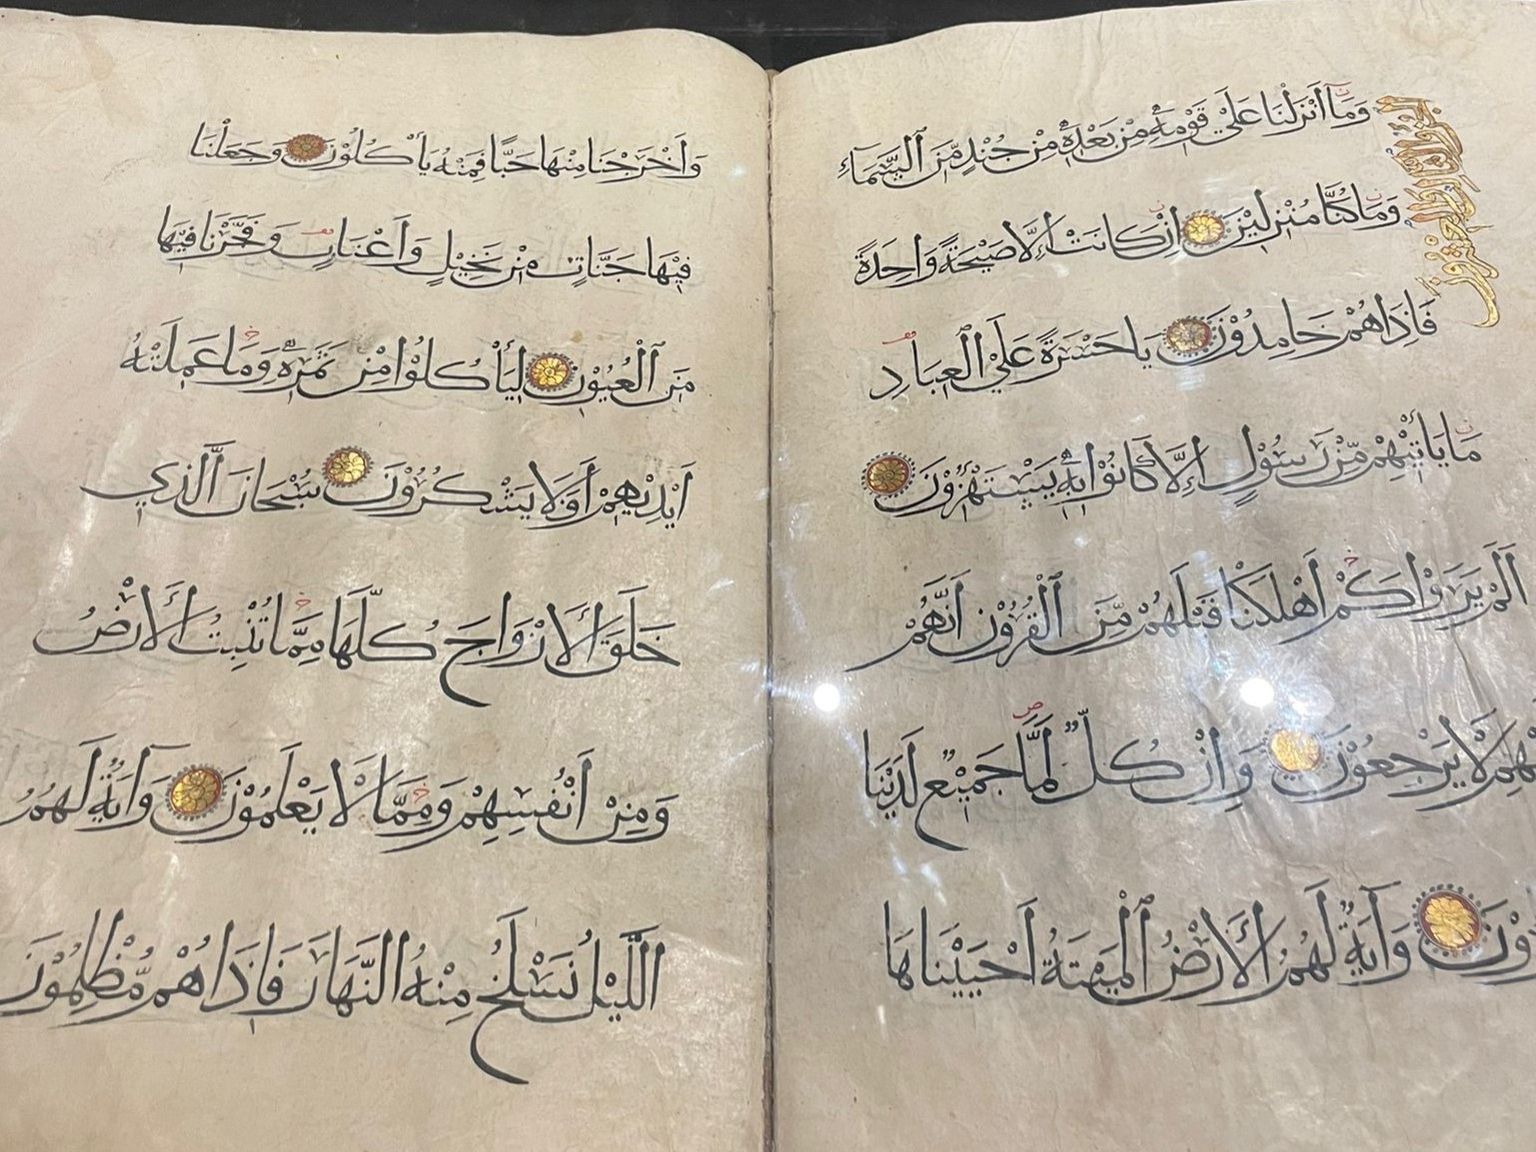 الجزو الثالث والعشرون
وَمَا أَنْزَلْنَا عَلَىٰ قَوْمِهِ مِنْ بَعْدِهِ مِنْ جُنْدٍ مِّنَ ٱلسَّمَاءِ
وَمَا كُنَّا مُنْزِلِيْنَ اِنْ كَانَتْ اِلَّا صَيْحَةً وَاحِدَةً
فَاِذَا هُمْ خَامِدُوْنَ يَا حَسْرَةً عَلَى ٱلْعِبَادِ
مَا يَأْتِيْهِمْ مِّنْ رَسُوْلٍ اِلَّا كَانُوْا بِهِ يَسْتَهْزِؤُنَ
اَلَمْ يَرَوْا كَمْ اَهْلَكْنَا قَبْلَهُمْ مِّنَ ٱلْقُرُوْنِ اَنَّهُمْ
لَيْهِمْ لَا يَرْجِعُوْنَ وَاِنْ كُلٌّ لَمَّا جَمِيْعٌ لَدَيْنَا
رُوْنَ وَاٰيَةٌ لَهُمُ الْاَرْضُ ٱلْمَيْتَةُ اَحْيَيْنَاهَا
وَاَخْرَجْنَا مِنْهَا حَبًّا فَمِنْهُ يَأْكُلُوْنَ وَجَعَلْنَا
فِيْهَا جَنَّاتٍ مِنْ نَخِيْلٍ وَاَعْنَابٍ وَفَجَّرْنَا فِيْهَا
مِنَ ٱلْعُيُوْنِ لِيَأْكُلُوْا مِنْ ثَمَرِهِ وَمَا عَمِلَتْهُ
اَيْدِيْهِمْ اَفَلَا يَشْكُرُوْنَ سُبْحَانَ ٱلَّذِي
خَلَقَ الْاَزْوَاجَ كُلَّهَا مِمَّا تُنْبِتُ الْاَرْضُ
وَمِنْ اَنْفُسِهِمْ وَمِمَّا لَا يَعْلَمُوْنَ وَاٰيَةٌ لَهُمُ
اللَّيْلُ نَسْلَخُ مِنْهُ النَّهَارَ فَاِذَا هُمْ مُّظْلِمُوْنَ